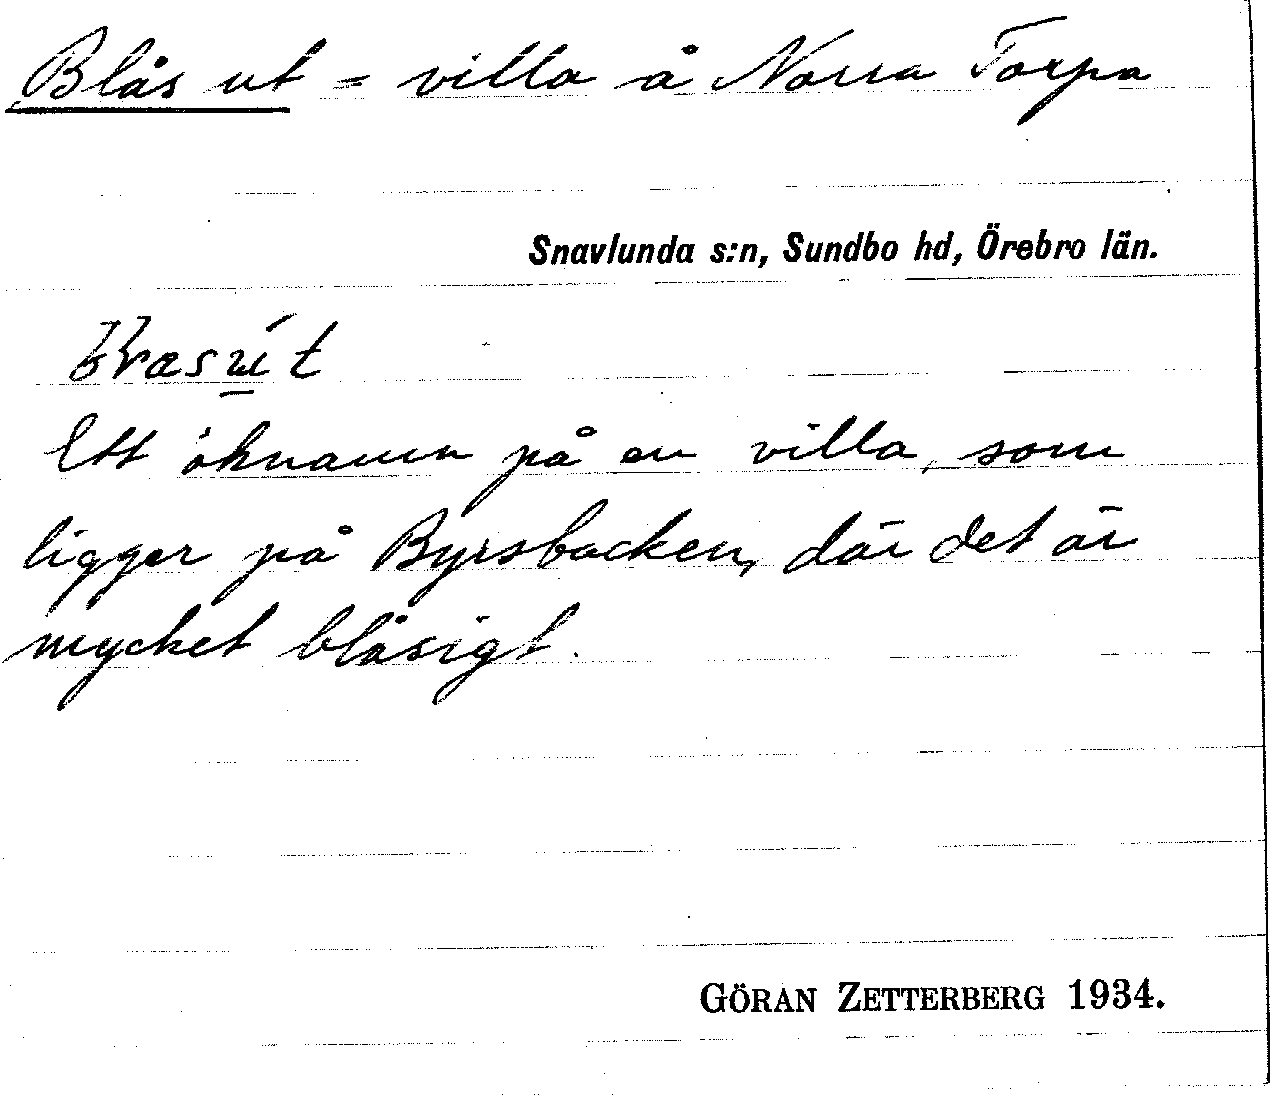 Blås ut = villa å Norra Torpa
Snavlunda s:n, Sundbo hd, Örebro län.
Ett öknamn på en villa, som
ligger på Byrsbacken, där det är
mycket blåsigt.
GÖRAN ZETTERBERG 1934.